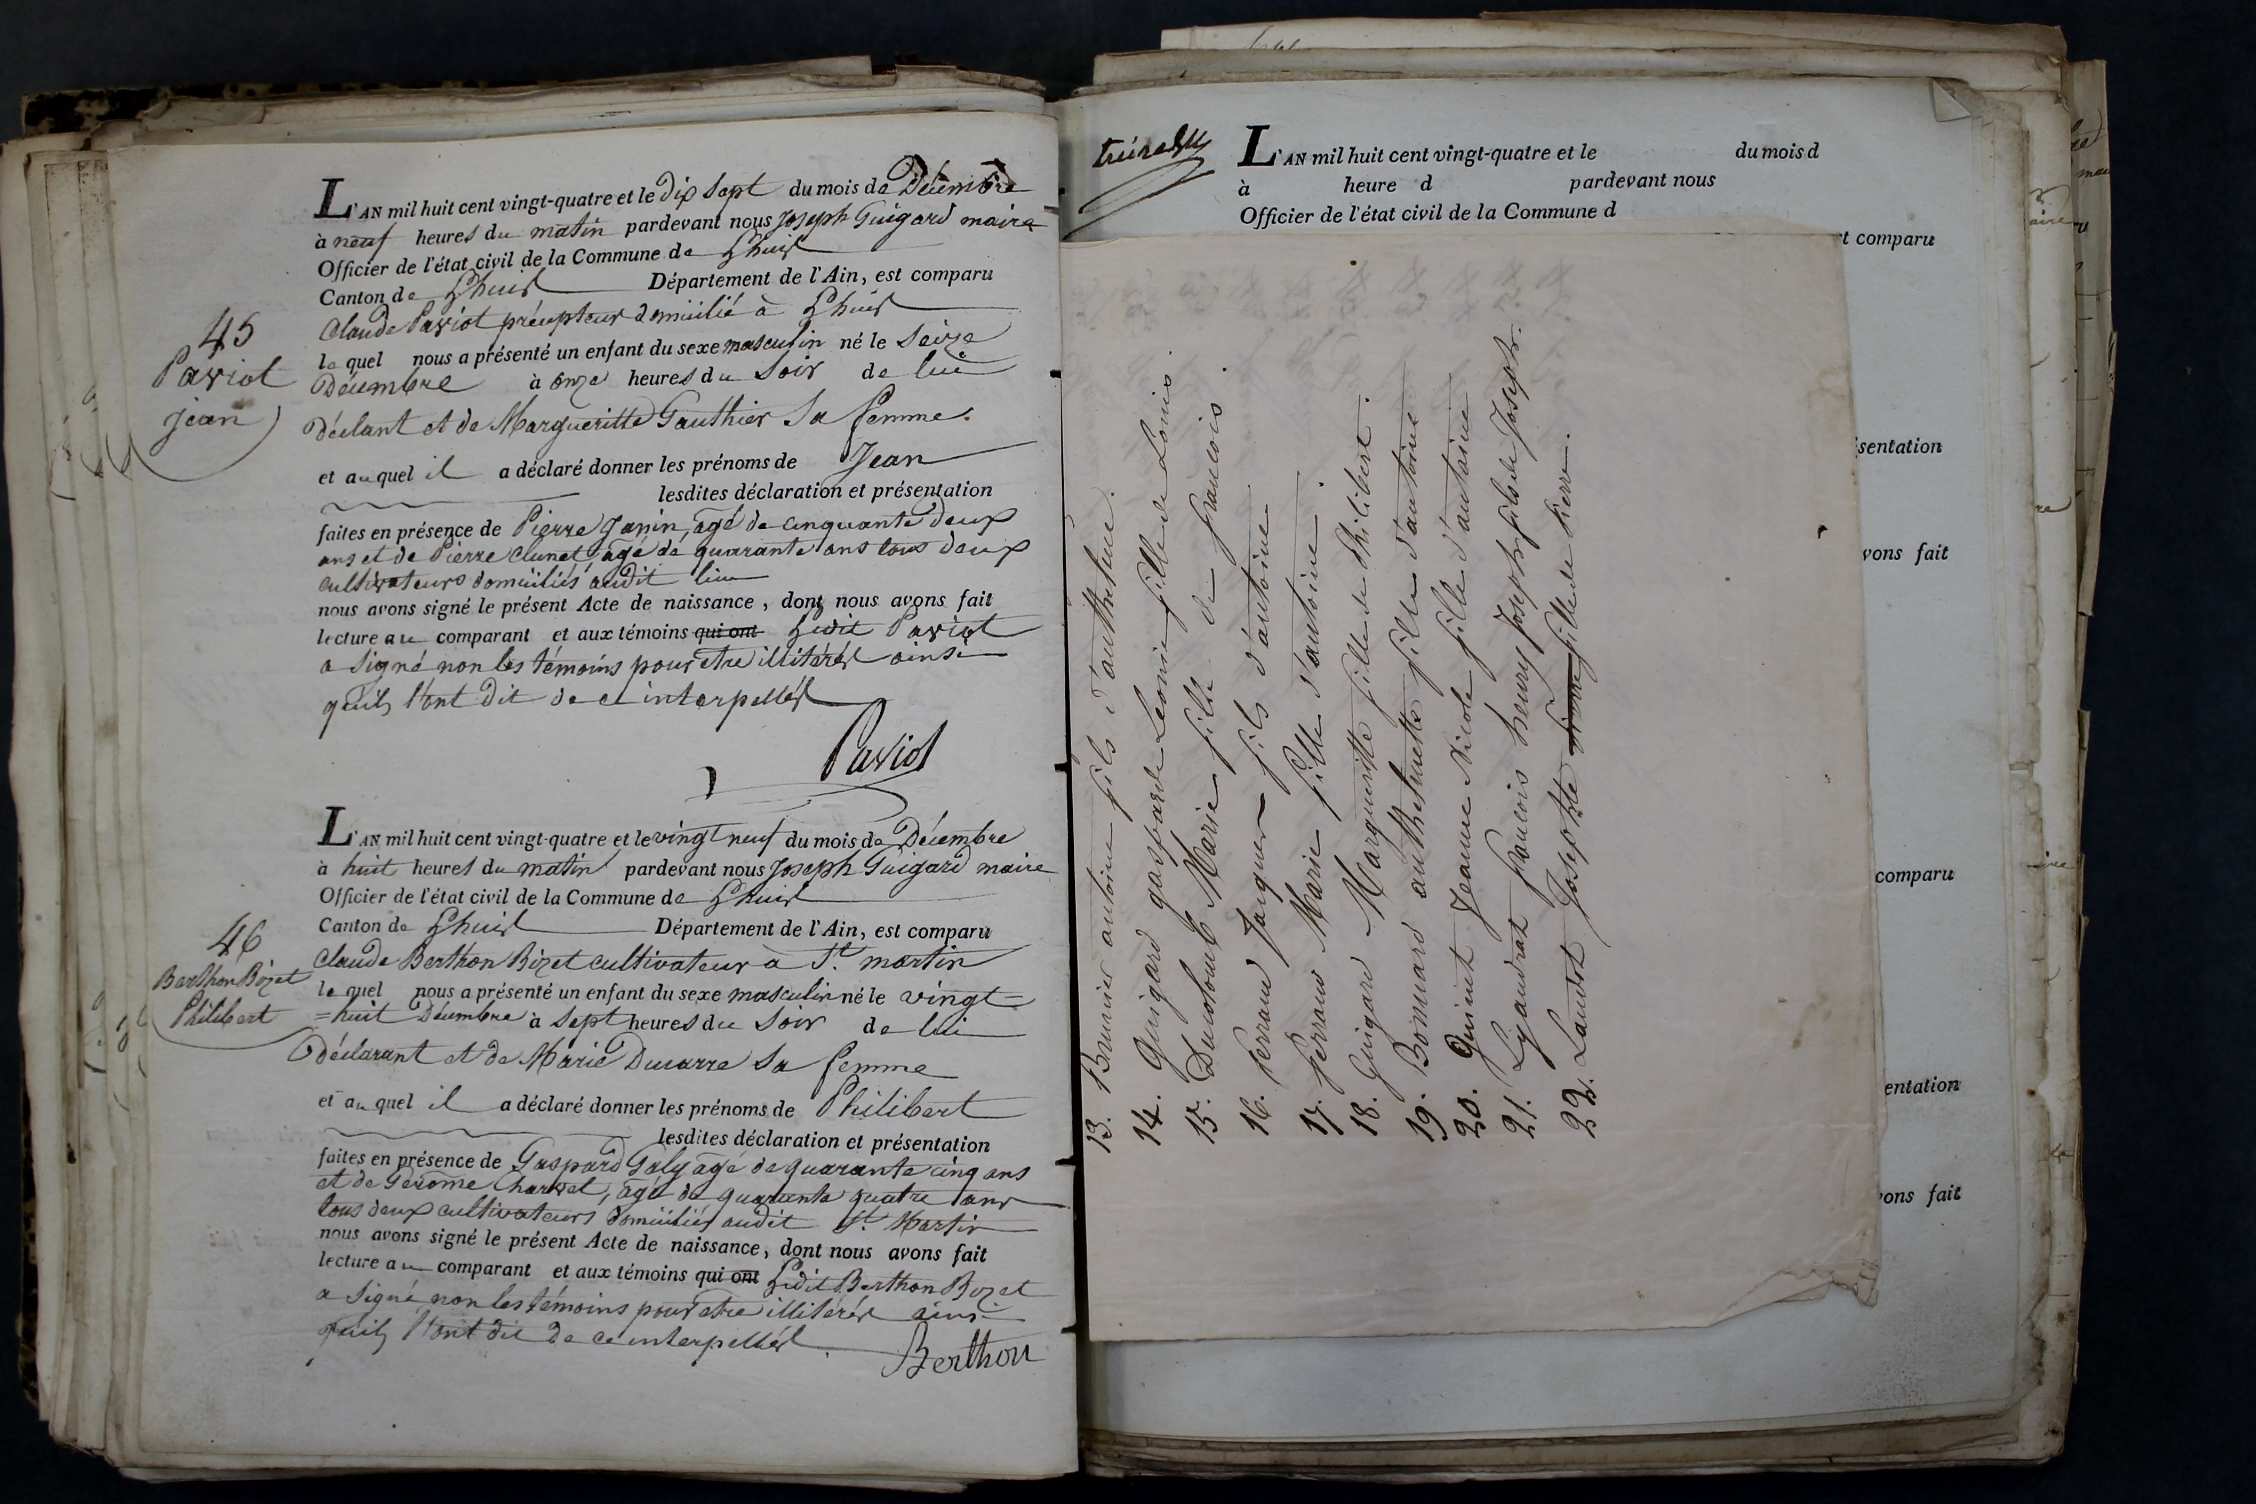 L'AN mil huit cent vingt-quatre et le Dix Sept du mois de Décembre
à neuf heures du matin pardevant nous Joseph Guigard maire
Officier de l'état civil de la Commune de Lhuis
Canton de Lhuis Département de l'Ain, est comparu
Claude Paviot précepteur domicilié à Lhuis
le quel nous a présenté un enfant du sexe masculin né le Seize
Décembre à onze heures du Soir de lui
Déclant et de Margueritte Gauthier Sa femme.
et auquel il a déclaré donner les prénoms de Jean
lesdites déclaration et présentation
faites en présence de Pierre Janin, âgé de cinquante deux
ans et de Pierre Clunet, âgé de quarante ans tous deux
cultivateurs domiciliés audit lieu
nous avons signé le présent Acte de naissance, dont nous avons fait
lecture au comparant et aux témoins qui ont Ledit Paviot
a Signé non les témoins pour etre illitérés ainsi
quils l'ont dit de ce interpellés
Paviot
45
Paviot
jean
L'AN mil huit cent vingt-quatre et le vingt neuf du mois de Décembre
à huit heures du matin pardevant nous Joseph Guigard maire
Officier de l'état civil de la Commune de Lhuis
Canton de Lhuis Département de l'Ain, est comparu
Claude Berthon Bozet cultivateur à St. martin
le quel nous a présenté un enfant du sexe masculin né le vingt
=huit Décembre à Sept heures du Soir de lui
déclarant et de Marie Ducarre Sa femme
et au quel il a déclaré donner les prénoms de Philibert
lesdites déclaration et présentation
faites en présence de Gaspard Galy âgé de quarante cinq ans
et de Gérome Charvet, âgé de quarante quatre ans
tous deux cultivateurs domiciliés audit St. Martin
nous avons signé le présent Acte de naissance, dont nous avons fait
lecture au comparant et aux témoins qui ont Ledit Berthon Bozet
a Signé non les témoins pour etre illitérés ainsi
quils l'ont dit de ce interpellés
Berthon
46
Berthon Bozet
Philibert
L'AN mil huit cent vingt-quatre et le du mois d
à heure d pardevant nous
Officier de l'état civil de la Commune d
t comparu
sentation
vons fait
comparu
entation
vons fait
13. Brunier antoine fils d'anthelme.
14. Guigard gasparde Leonie fille de Louis.
15. Ducolomb Marie fille de francois.
16. ferrand Jacques fils d'antoine
17. ferrand Marie fille d'antoine.
18. Guigard Margueritte fille de Philibert.
19. Bonnard anthelmette fille d'antoine
20. Quinet Jeanne Nicole fille d'antoine
21. Lyaudrat francois henry Joseph fils de Joseph.
22. Laudot Josephte fille de Pierre.